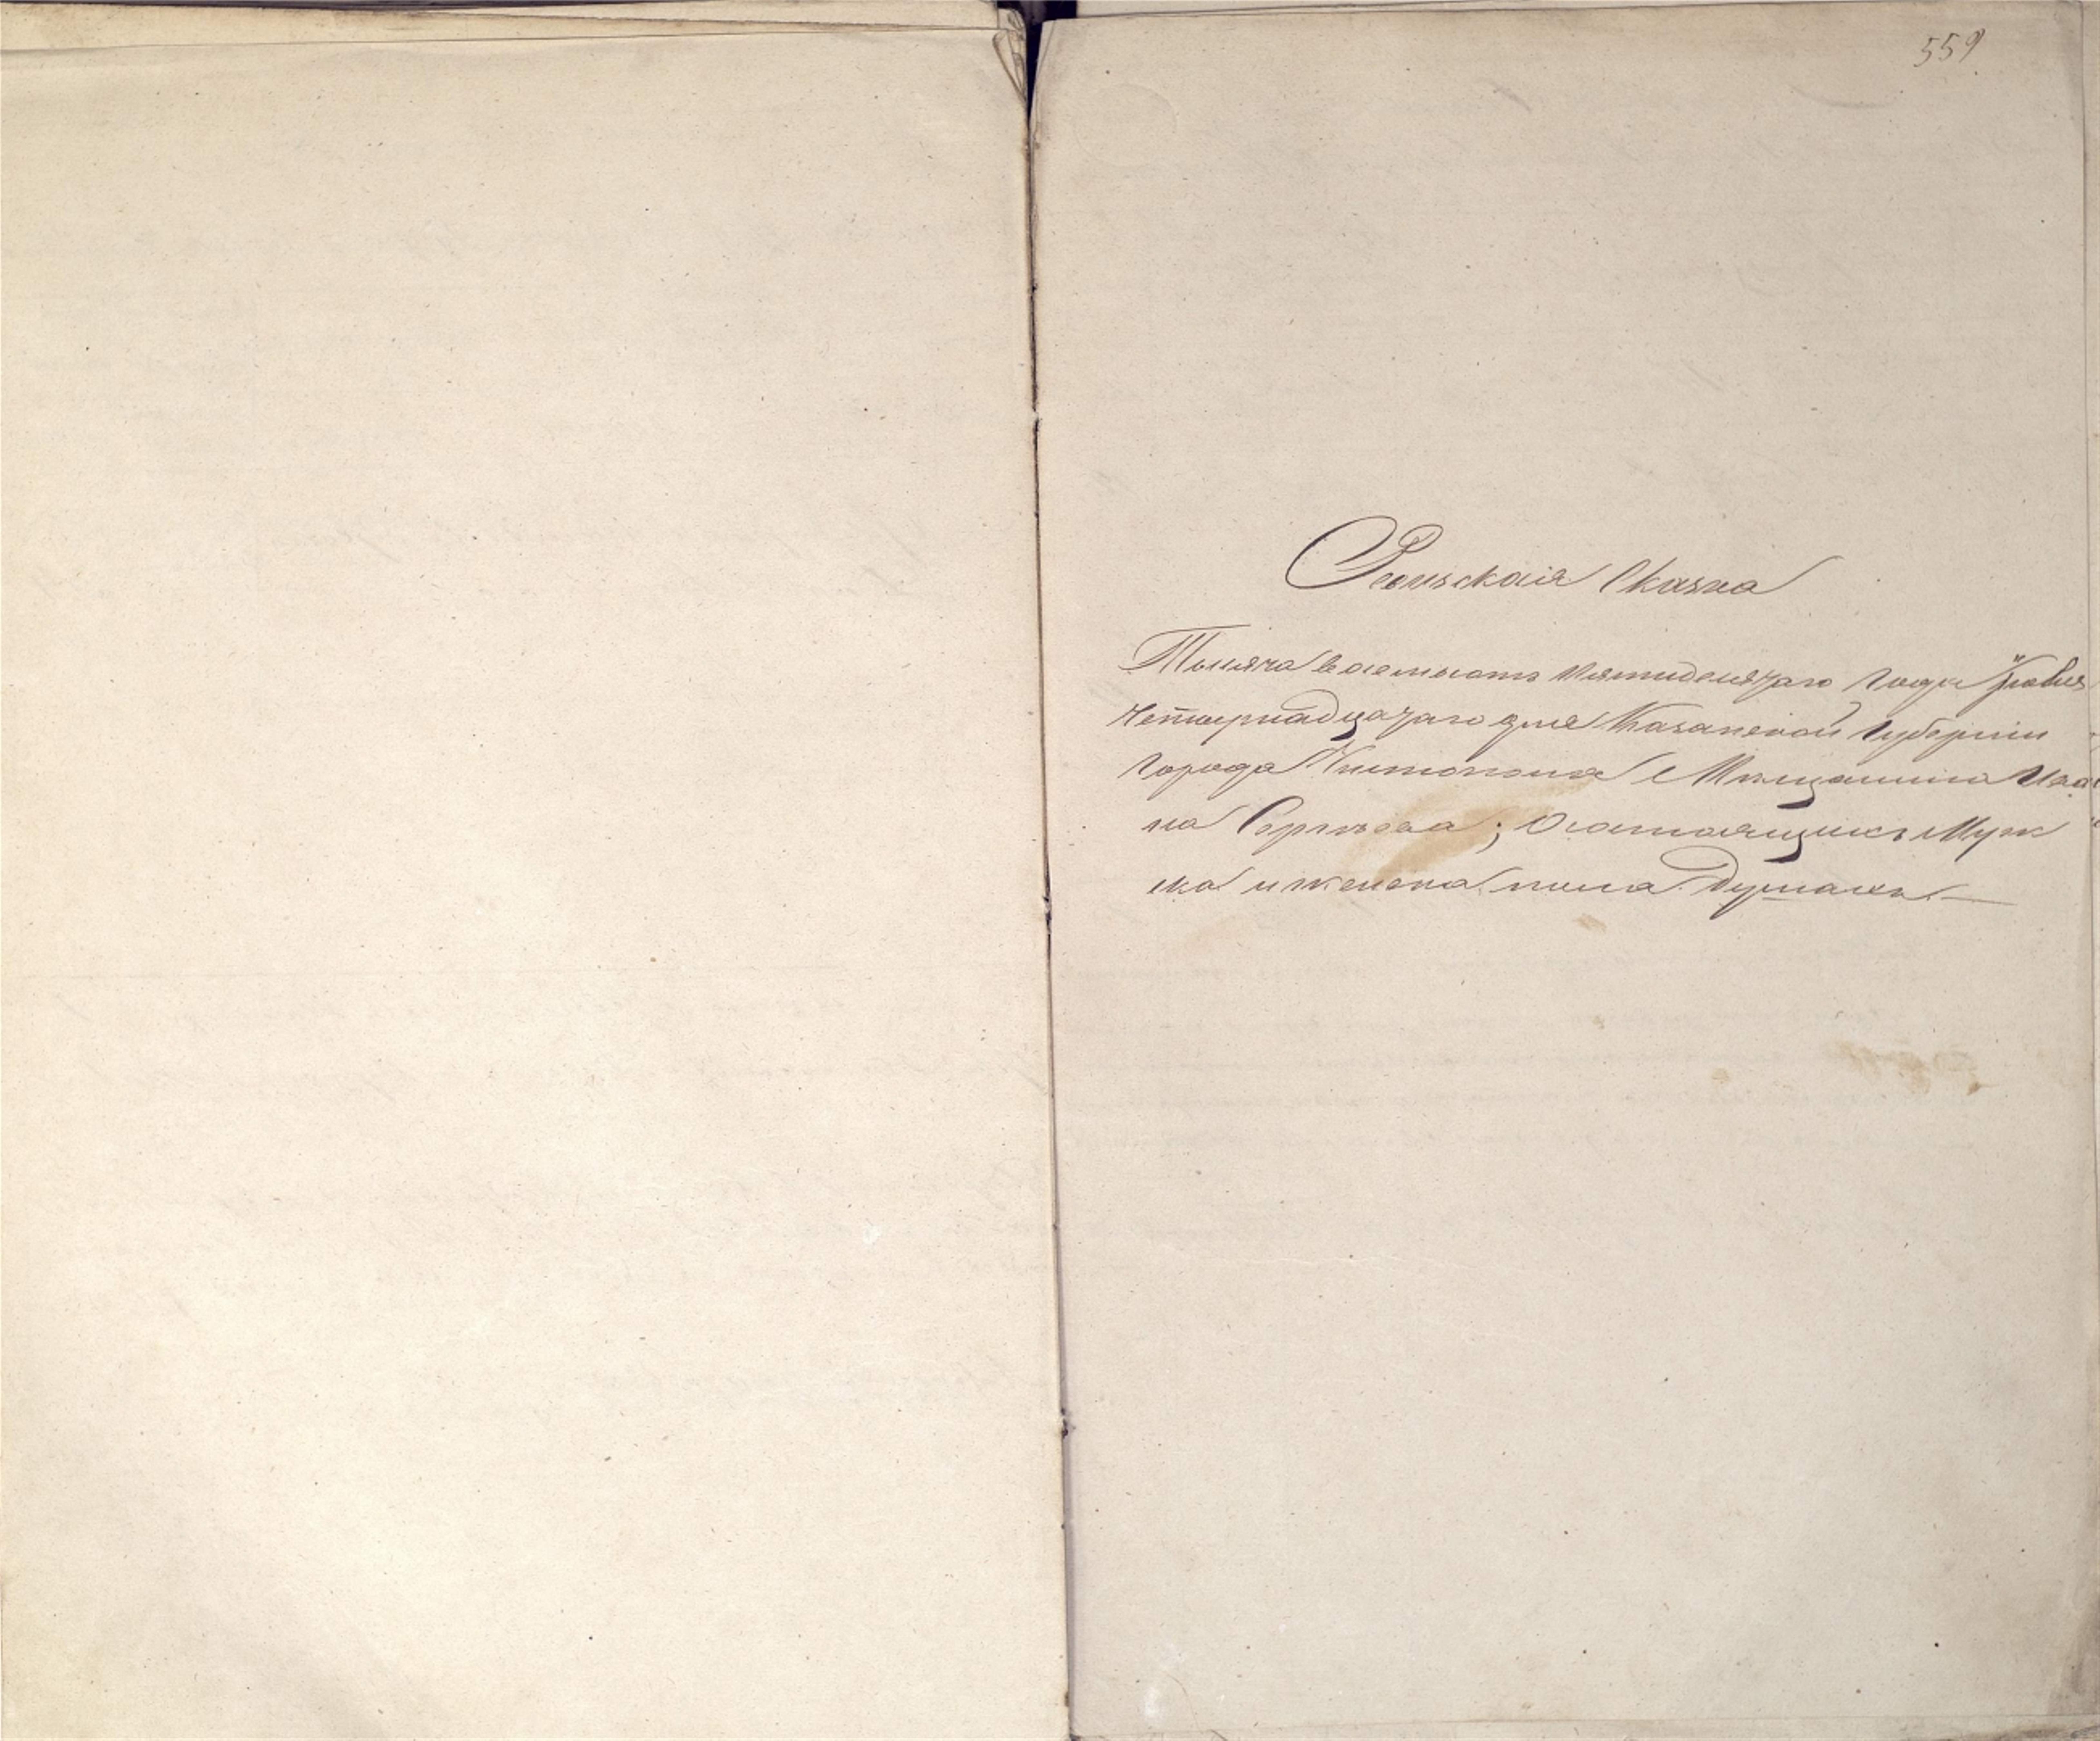 559
Ревизская Сказка
Тысяча восемьсотъ Пятидесятаго Года Іюля
Четырнадцатаго дня Казанской Губерніи
Города Чистополя Мѣщанина Ива
на Сергѣева; О состоящихъ Муж
ска и женска пола Душахъ